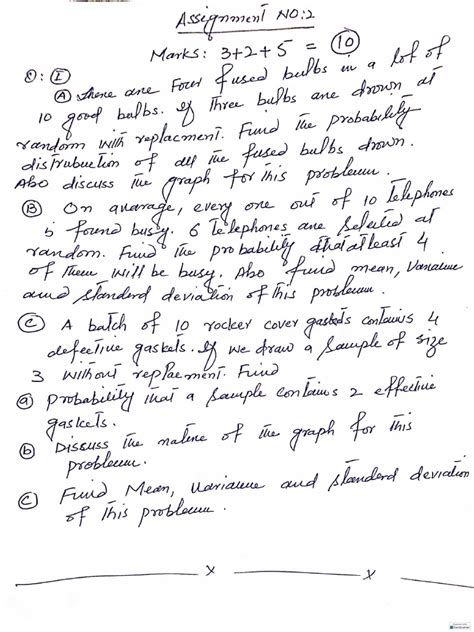 Assignment NO:2
Marks: 3+2+5 = 10
Q: I
A There are Four fused bulbs in a lot of
10 good bulbs. If Three bulbs are drown at
random with replacment. Fund The probability
distrubuction of all the fused bulbs drown.
Also discuss the graph for this problem.
B On avarage, every one out of 10 telephones
is found busy. 6 telephones are Selected at
random. Find the probability that atleast 4
of them will be busy. Also find mean, Variance
and standerd deviation of this problem.
C A batch of 10 rocker cover gaskets contains 4
defective gaskets. If we draw a Sample of size
3 without replacement. Find
a probability that a sample contains 2 effective
gaskets.
b Discuss the nature of the graph for this
problem.
c Find Mean, Variance and standerd deviation
of this problem.
x x